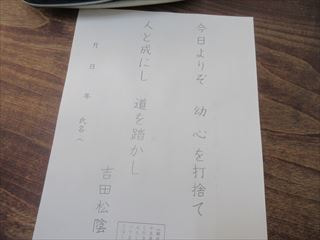 今日よりぞ 幼心を打捨て
人と成にし 道を踏かし
吉田松陰
月 日 年 氏名へ